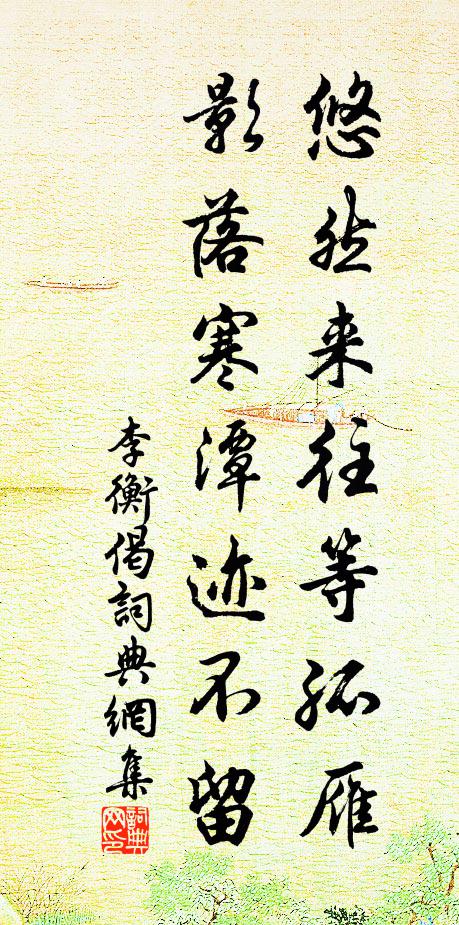 悠然来往等孤雁
影落寒潭迹不留
李衡偈詞典網集
詞典网印